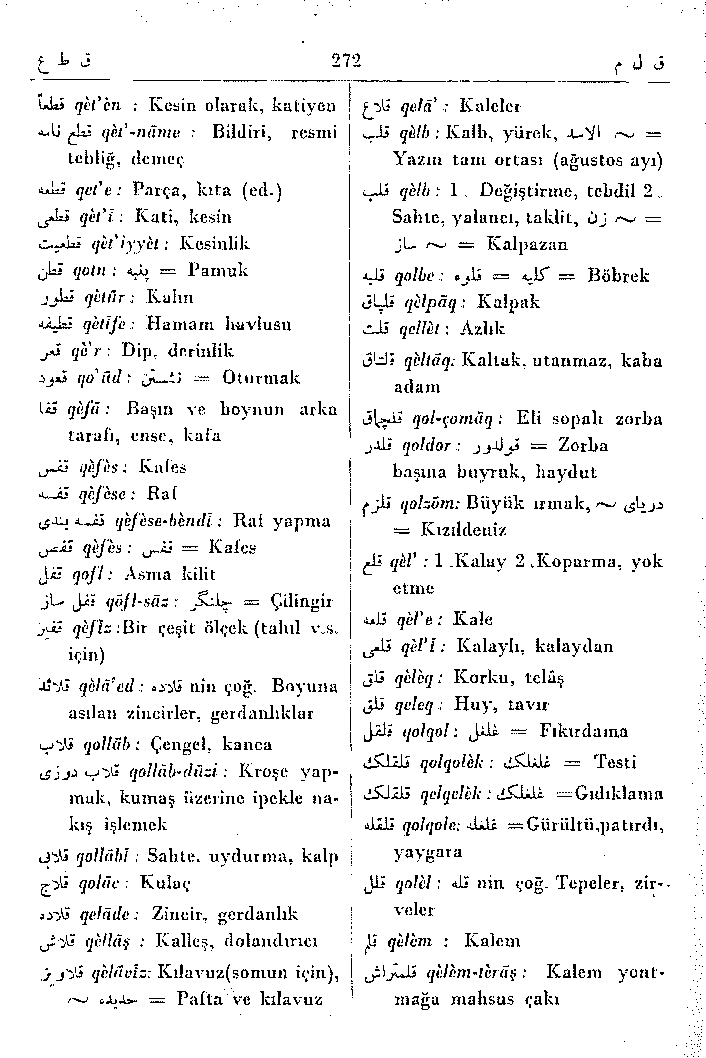 ق ط ع 272 ق ل م
قطعاً qèt'èn : Kesin olarak, katiyen
قطع نامه qèt'-nâme : Bildiri, resmi
tebliğ, demeç
قطعه qet'e : Parça, kıta (ed.)
قطعی qèt'î : Kati, kesin
قطعیت qèt'iyyèt : Kesinlik
قطن qotn : پنبه = Pamuk
قطور qètûr : Kalın
قطیفه qètîfe : Hamam havlusu
قعر qè'r : Dip, derinlik
قعود qo'ûd : نشستن = Oturmak
قفا qèfâ : Başın ve boynun arka
tarafı, ense, kafa
قفس qèfès : Kafes
قفسه qèfèse : Raf
قفسه بندی qèfèse-bèndî : Raf yapma
قفص qèfès : قفس = Kafes
قفل qofl : Asma kilit
قفل ساز qöfl-sâz : چلنگر = Çilingir
قفیز qèfîz :Bir çeşit ölçek (tahıl v.s.
için)
قلائد qèlâ'ed : قلاده nin çoğ. Boyuna
asılan zincirler, gerdanlıklar
قلاب qollâb : Çengel, kanca
قلاب دوزی qollâb-dûzi : Kroşe yap-
mak, kumaş üzerine ipekle na-
kış işlemek
قلابی qollâbî : Sahte, uydurma, kalp
قلاج qolâc : Kulaç
قلاده qelâde : Zincir, gerdanlık
قلاش qèllâş : Kalleş, dolandırıcı
قلاویز qèlâvîz: Kılavuz(somun için),
حدیده ~ = Pafta ve kılavuz
قلاع qelâ' : Kaleler
قلب qèlb : Kalb, yürek, الاسد ~ =
Yazın tam ortası (ağustos ayı)
قلب qèlb : 1 . Değiştirme, tebdil 2 .
Sahte, yalancı, taklit, زن ~ =
ساز ~ = Kalpazan
قلبه qolbe : قلوه = کلیه = Böbrek
قلپاق qèlpâq : Kalpak
قلت qellèt : Azlık
قلتاق qèltâq: Kaltak, utanmaz, kaba
adam
قلچماق qol-çomâq : Eli sopalı zorba
قلدر qoldor : قولدور = Zorba
başına buyruk, haydut
قلزم qolzöm: Büyük ırmak, دریای ~
= Kızıldeniz
قلع qèl' : 1 .Kalay 2 .Koparma, yok
etme
قلعه qèl'e : Kale
قلعی qèl'î : Kalaylı, kalaydan
قلق qèlèq : Korku, telâş
قلق qeleq : Huy, tavır
قلقل qolqol : غلغل = Fıkırdama
قلقلک qolqolèk : غلغلک = Testi
قلقلک qelqelèk : غلغلک =Gıdıklama
قلقله qolqole: غلغله =Gürültü,patırdı,
yaygara
قلل qolèl : قله nin çoğ. Tepeler, zir-
veler
قلم qèlèm : Kalem
قلمتراش qèlèm-tèrâş : Kalem yont-
mağa mahsus çakı